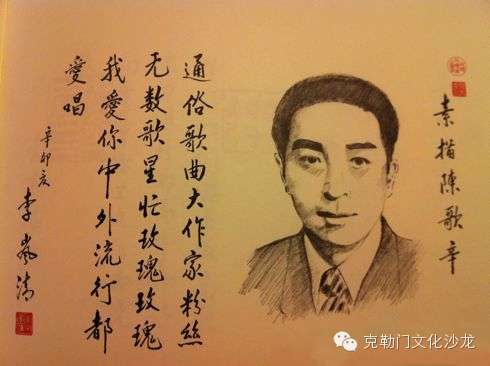 素描陳歌辛
通俗歌曲大作家粉丝
无数歌星忙玫瑰玫瑰
我愛你中外流行都
愛唱
辛卯亥
李岚清
克勒门文化沙龙